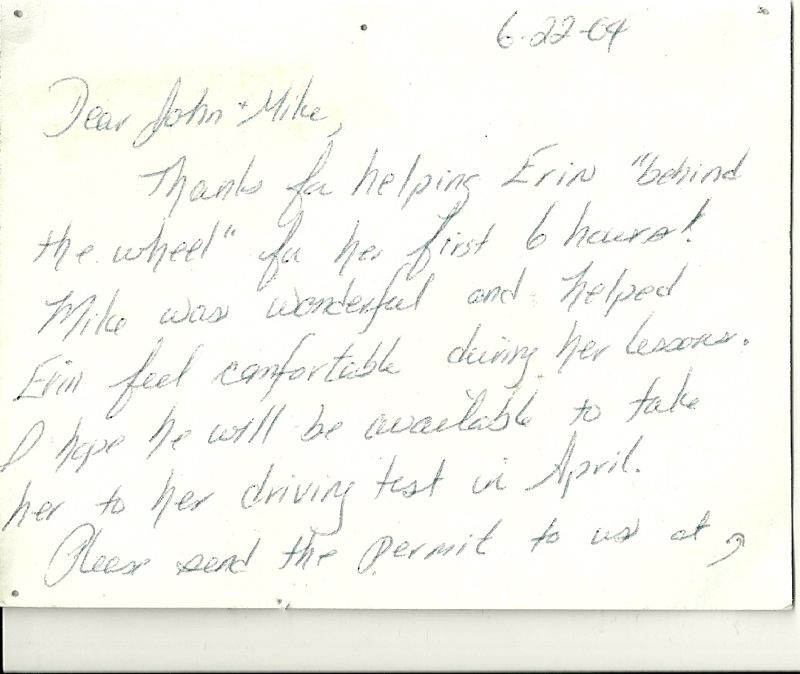 6-22-04
Dear John + Mike,
Thanks for helping Erin "behind
the wheel" for her first 6 hours!
Mike was wonderful and helped
Erin feel comfortable during her lessons.
I hope he will be available to take
her to her driving test in April.
Please send the permit to us at